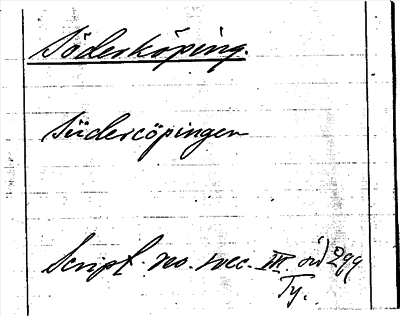 Söderköping.
Südercöpingen
Script. no. svec. III. sid 299
Ty.